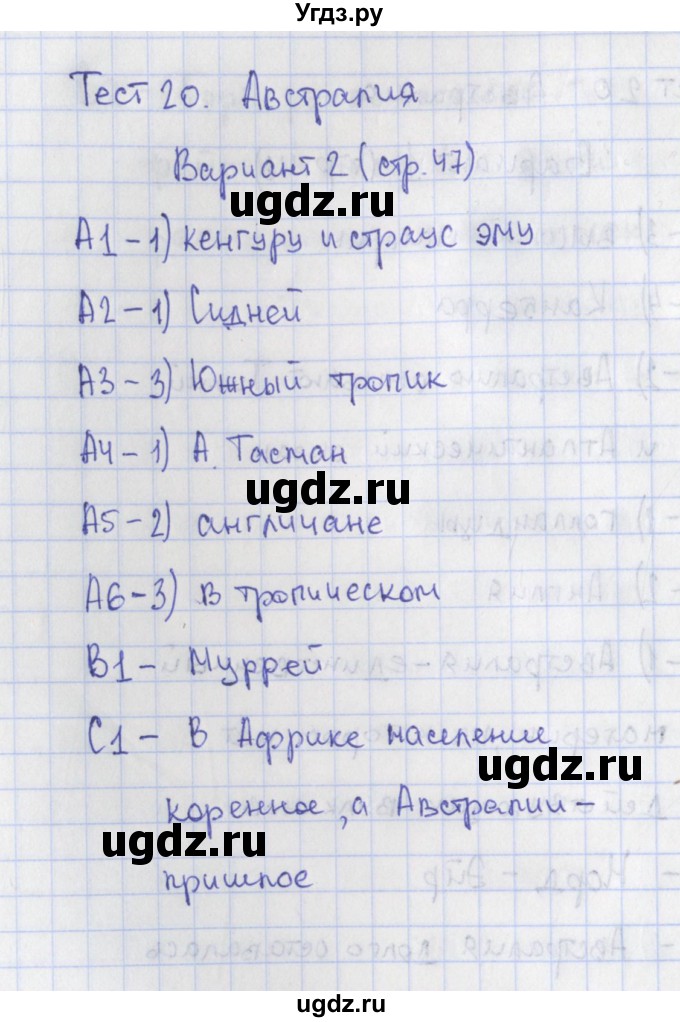 Угдз.ру
Тест 20. Австралия
Вариант 2 (стр. 47)
ugdz.ru
А1 - 1) кенгуру и страус эму
А2 - 1) Сидней
А3 - 3) Южный тропик
А4 - 1) А. Тасман
ugdz.ru
А5 - 2) англичане
А6 - 3) в тропическом
В1 - Муррей
С1 - В Африке население
ugdz.ru
коренное, а Австралии -
ugdz.ru
пришлое
ugdz.ru